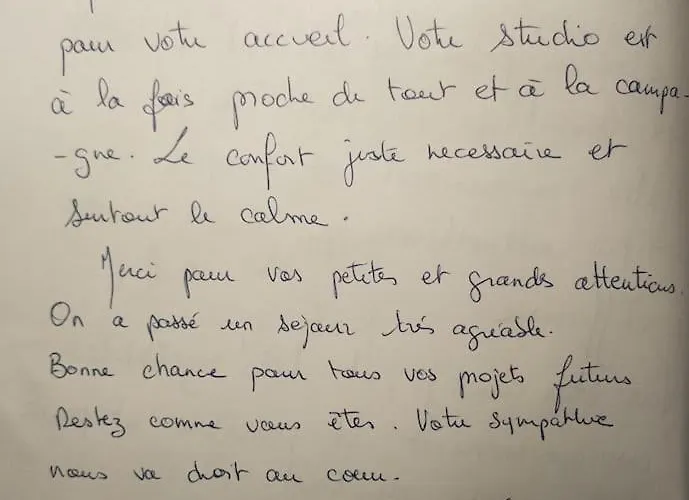 pour votre accueil. Votre studio est
à la fois proche de tout et à la campa-
-gne. Le confort juste necessaire et
surtout le calme.
Merci pour vos petites et grands attentions.
On a passé un sejour très agréable.
Bonne chance pour tous vos projets futurs
Restez comme vous êtes. Votre sympathie
nous va droit au coeur.